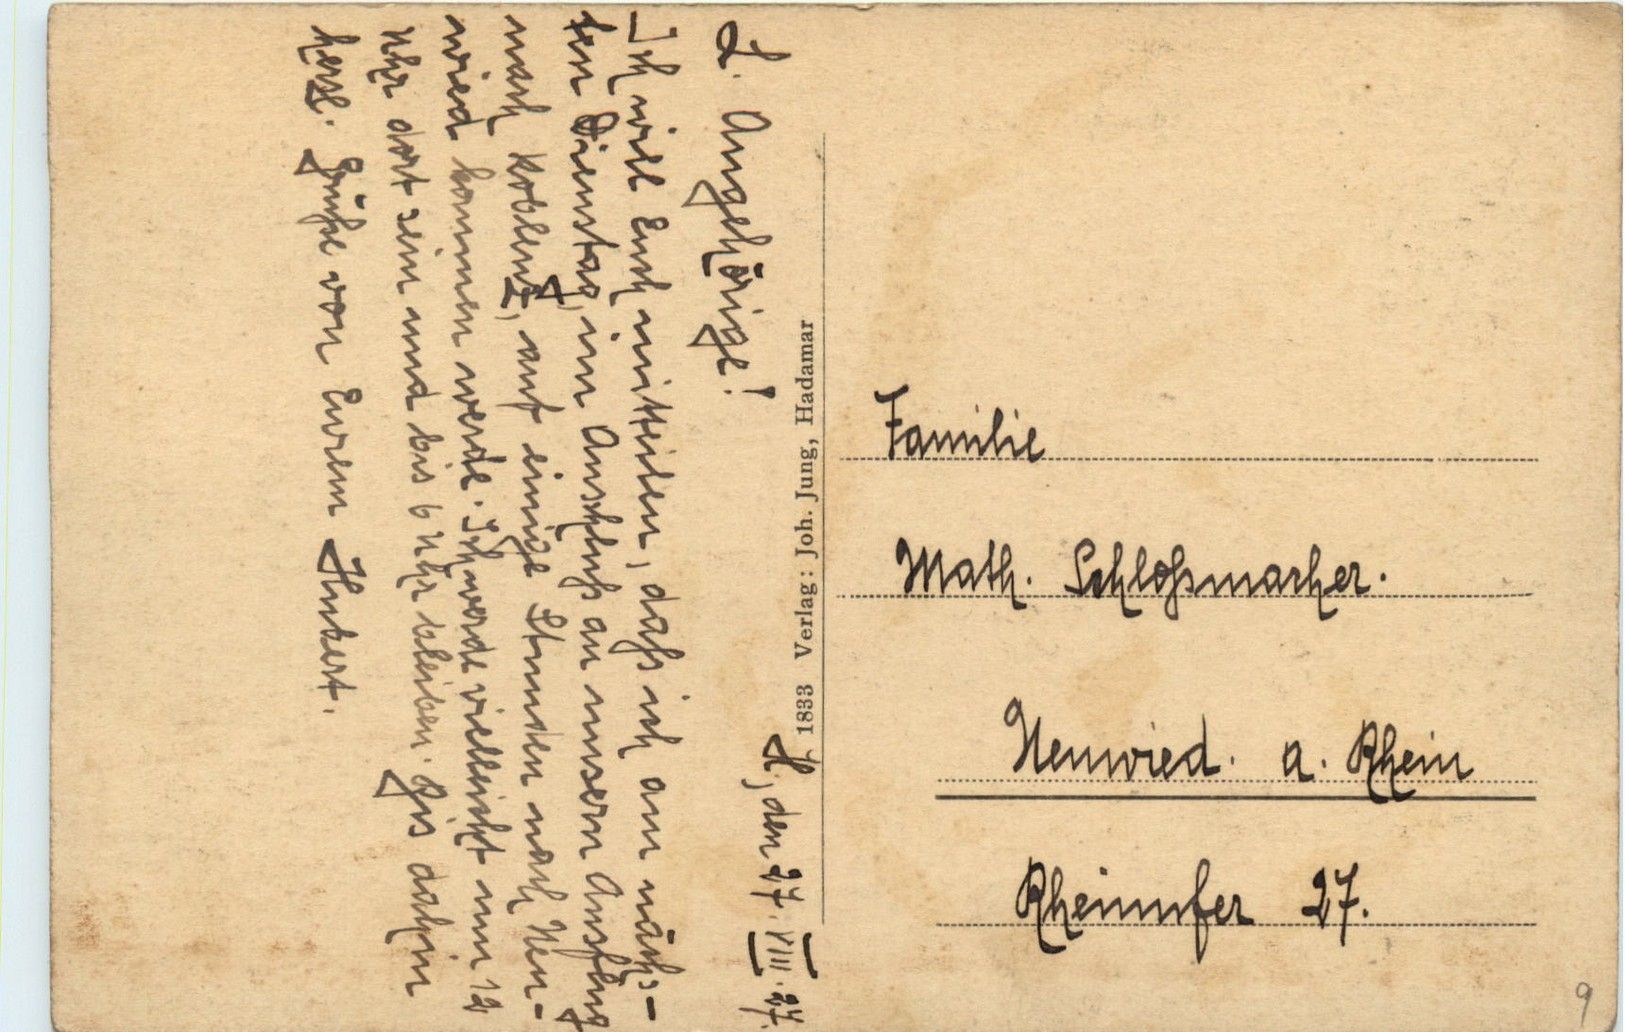 H, den 27. VIII. 27.
L. Angehörige!
Ich will Euch mitteilen, dass ich am nächs-
ten Dienstag, im Anschluss an unsern Ausflug
nach Koblenz, auf einige Stunden nach Neu-
wied kommen werde. Ich werde vielleicht um 12
Uhr dort sein und bis 6 Uhr bleiben. Bis dahin
herzl. Grüße von Eurem Hubert.
1833 Verlag: Joh. Jung, Hadamar
Familie
Math. Schloßmacher.
Neuwied. a. Rhein
Rheinufer 27.
9